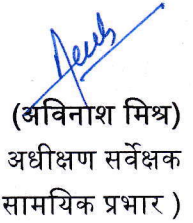 (अविनाश मिश्र)
अधीक्षण सर्वेक्षक
सामयिक प्रभार )